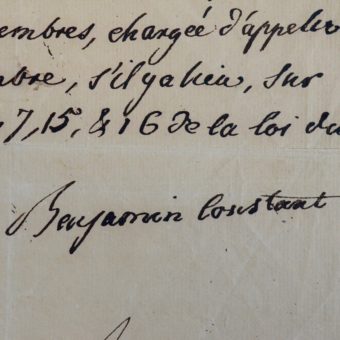 embres, chargée d'appeler
bre, s'il y a lieu, sur
7, 15, & 16 de la loi du
Benjamin Constant